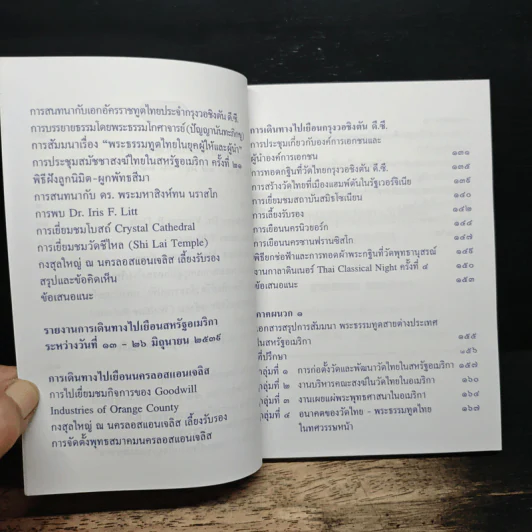 การสนทนากับเอกอัครราชทูตไทยประจำกรุงวอชิงตัน ดี.ซี.
การบรรยายธรรมโดยพระธรรมโกศาจารย์ (ปัญญานันทะภิกขุ)
การสัมมนาเรื่อง "พระธรรมทูตไทยในยุคผู้ให้และผู้นำ"
การประชุมสมัชชาสงฆ์ไทยในสหรัฐอเมริกา ครั้งที่ ๒๑
พิธีฝังลูกนิมิต-ผูกพัทธสีมา
การสนทนากับ ดร. พระมหาสิงห์ทน นราสโภ
การพบ Dr. Iris F. Litt
การเยี่ยมชมโบสถ์ Crystal Cathedral
การเยี่ยมชมวัดซีไหล (Shi Lai Temple)
กงสุลใหญ่ ณ นครลอสแอนเจลิส เลี้ยงรับรอง
สรุปและข้อคิดเห็น
ข้อเสนอแนะ
รายงานการเดินทางไปเยือนสหรัฐอเมริกา
ระหว่างวันที่ ๑๓ - ๒๖ มิถุนายน ๒๕๓๙
การเดินทางไปเยือนนครลอสแอนเจลิส
การไปเยี่ยมชมกิจการของ Goodwill
Industries of Orange County
กงสุลใหญ่ ณ นครลอสแอนเจลิส เลี้ยงรับรอง
การจัดตั้งพุทธสมาคมนครลอสแอนเจลิส
การเดินทางไปเยือนกรุงวอชิงตัน ดี.ซี.
การประชุมเกี่ยวกับองค์การเอกชนและ
ผู้นำองค์การเอกชน ๑๓๑
การทอดกฐินที่วัดไทยกรุงวอชิงตัน ดี.ซี. ๑๓๕
การสร้างวัดไทยที่เมืองแฮมพ์ตันในรัฐเวอร์จิเนีย ๑๓๙
การเยี่ยมชมสถาบันสมิธโซเนียน ๑๔๐
การเลี้ยงรับรอง ๑๔๒
การเยือนนครนิวยอร์ก ๑๔๔
การเยือนนครซานฟรานซิสโก ๑๔๗
พิธียกช่อฟ้าและการทอดผ้าพระกฐินที่วัดพุทธานุสรณ์ ๑๔๙
งานกาลาดินเนอร์ Thai Classical Night ครั้งที่ ๔ ๑๕๐
ข้อเสนอแนะ ๑๕๓
ภาคผนวก ๑
เอกสารสรุปการสัมมนา พระธรรมทูตสายต่างประเทศ
ในสหรัฐอเมริกา ๑๕๕
ที่ปรึกษา ๑๕๖
กลุ่มที่ ๑ การก่อตั้งวัดและพัฒนาวัดไทยในสหรัฐอเมริกา ๑๕๗
กลุ่มที่ ๒ งานบริหารคณะสงฆ์ในวัดไทยในอเมริกา ๑๖๐
กลุ่มที่ ๓ งานเผยแผ่พระพุทธศาสนาในอเมริกา ๑๖๔
กลุ่มที่ ๔ อนาคตของวัดไทย - พระธรรมทูตไทย ๑๖๗
ในทศวรรษหน้า